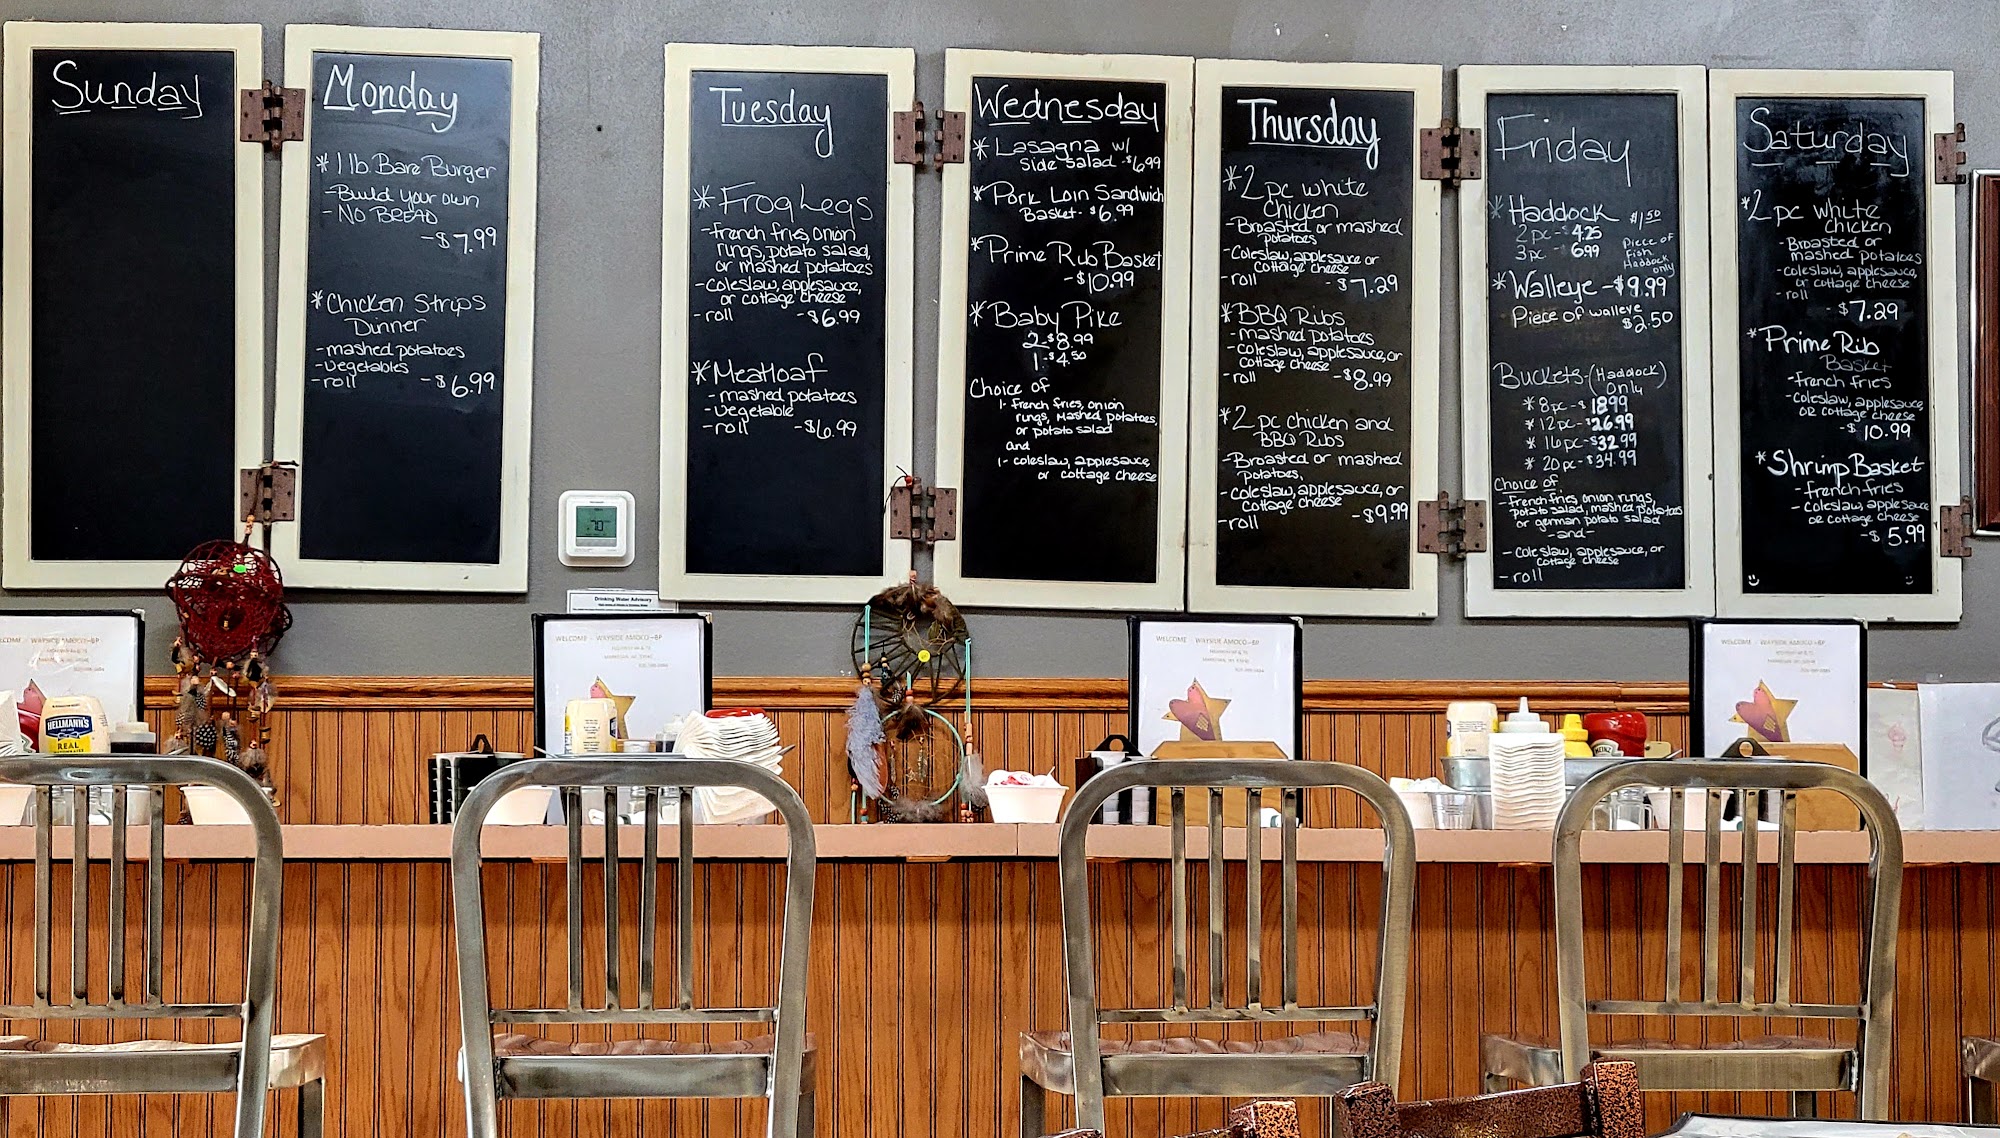 Sunday
Monday
* 1 lb. Bare Burger
- Build your own
- NO BREAD
- $7.99
* Chicken Strips
Dinner
- mashed potatoes
- vegetables
- roll - $6.99
Tuesday
* Frog Legs
- French fries, onion
rings, potato salad,
or mashed potatoes
- Coleslaw, applesauce,
or cottage cheese
- roll - $6.99
* Meatloaf
- mashed potatoes
- vegetable
- roll - $6.99
Wednesday
* Lasagna w/
side salad - $6.99
* Pork Loin Sandwich
Basket - $6.99
* Prime Rub Basket
- $10.99
* Baby Pike
2 - $8.99
1 - $4.50
Choice of
1- French fries, onion
rings, mashed potatoes,
or potato salad
and
1- coleslaw, applesauce
or cottage cheese
Thursday
* 2 pc white
Chicken
- Broasted or mashed
potatoes
- Coleslaw, applesauce or
cottage cheese
- roll - $7.29
* BBQ Ribs
- mashed potatoes
- coleslaw, applesauce, or
cottage cheese
- roll - $8.99
* 2 pc chicken and
BBQ Ribs
- Broasted or mashed
Potatoes,
- Coleslaw, applesauce, or
cottage cheese
- roll - $9.99
Friday
* Haddock $1.50
2 pc - $4.25 Piece of
3 pc - 6.99 Fish
Haddock
only
* Walleye - $9.99
Piece of walleye
$2.50
Buckets - (Haddock)
Only
* 8 pc - $18.99
* 12 pc - $26.99
* 16 pc - $32.99
* 20 pc - $34.99
Choice of
- French fries, onion rings,
potato salad, mashed potatoes
or german potato salad
- and -
- Coleslaw, applesauce, or
cottage cheese
- roll
Saturday
* 2 pc white
chicken
- Broasted or
mashed potatoes
- coleslaw, applesauce,
or cottage cheese
- roll
- $7.29
* Prime Rib
Basket
- french fries
- Coleslaw, applesauce,
OR cottage cheese
- $10.99
* Shrimp Basket
- french fries
- Coleslaw, applesauce
or cottage cheese
- $5.99
70
Drinking Water Advisory
WELCOME - WAYSIDE AMOCO-BP
WELCOME - WAYSIDE AMOCO-BP
WELCOME - WAYSIDE AMOCO-BP
WELCOME - WAYSIDE AMOCO-BP
HELLMANN'S
REAL
HEINZ